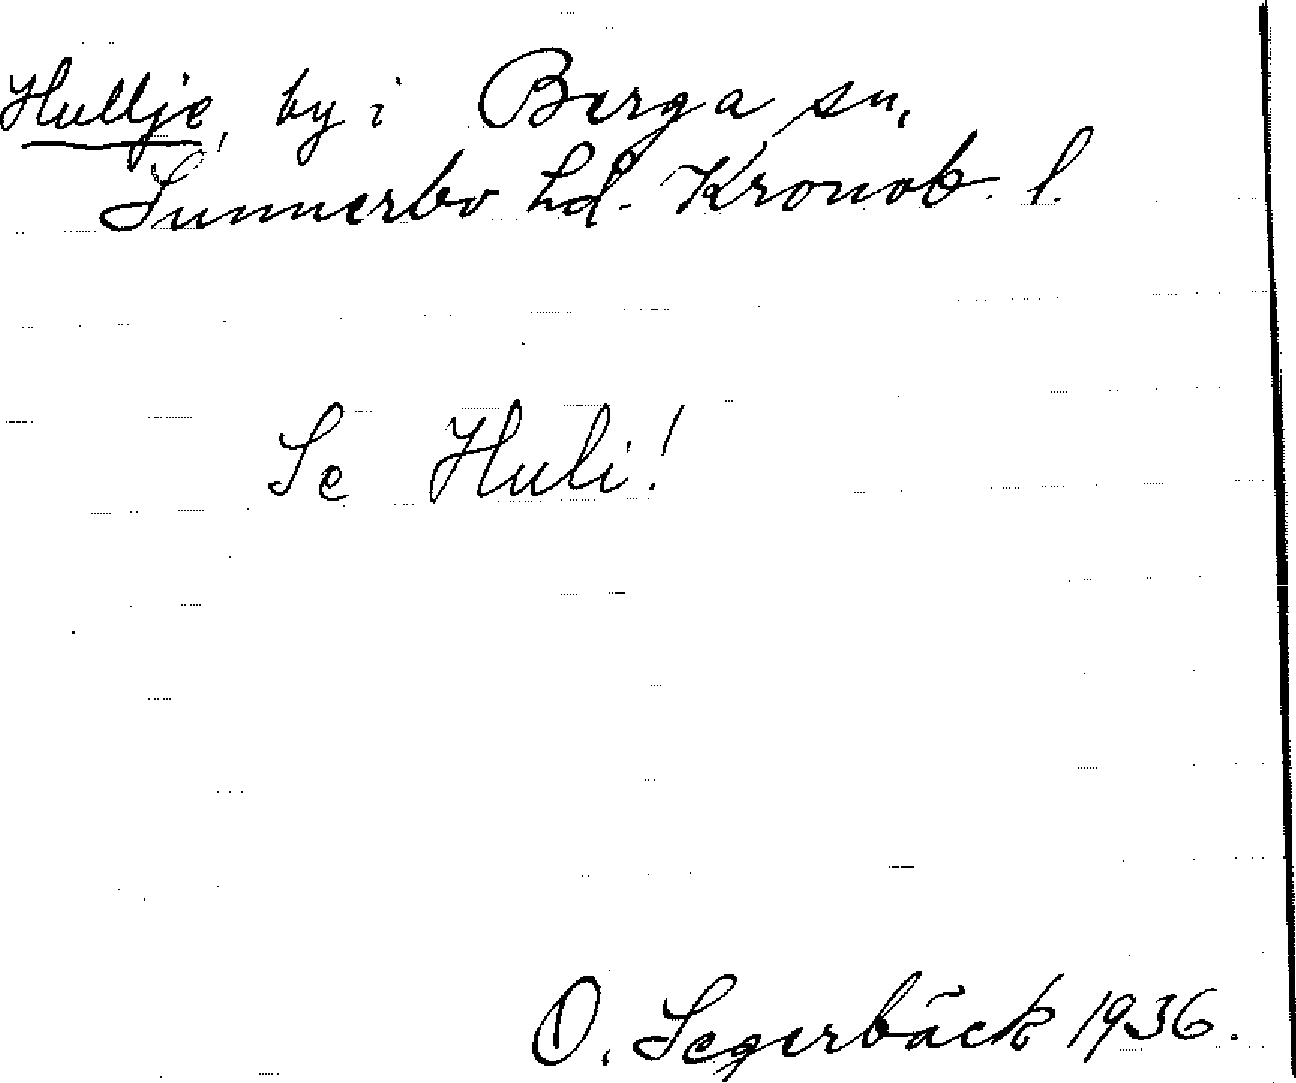 Hullje, by i Berga sn,
Sunnerbo hd. Kronob. l.
Se Huli!
O. Segerbäck 1936.